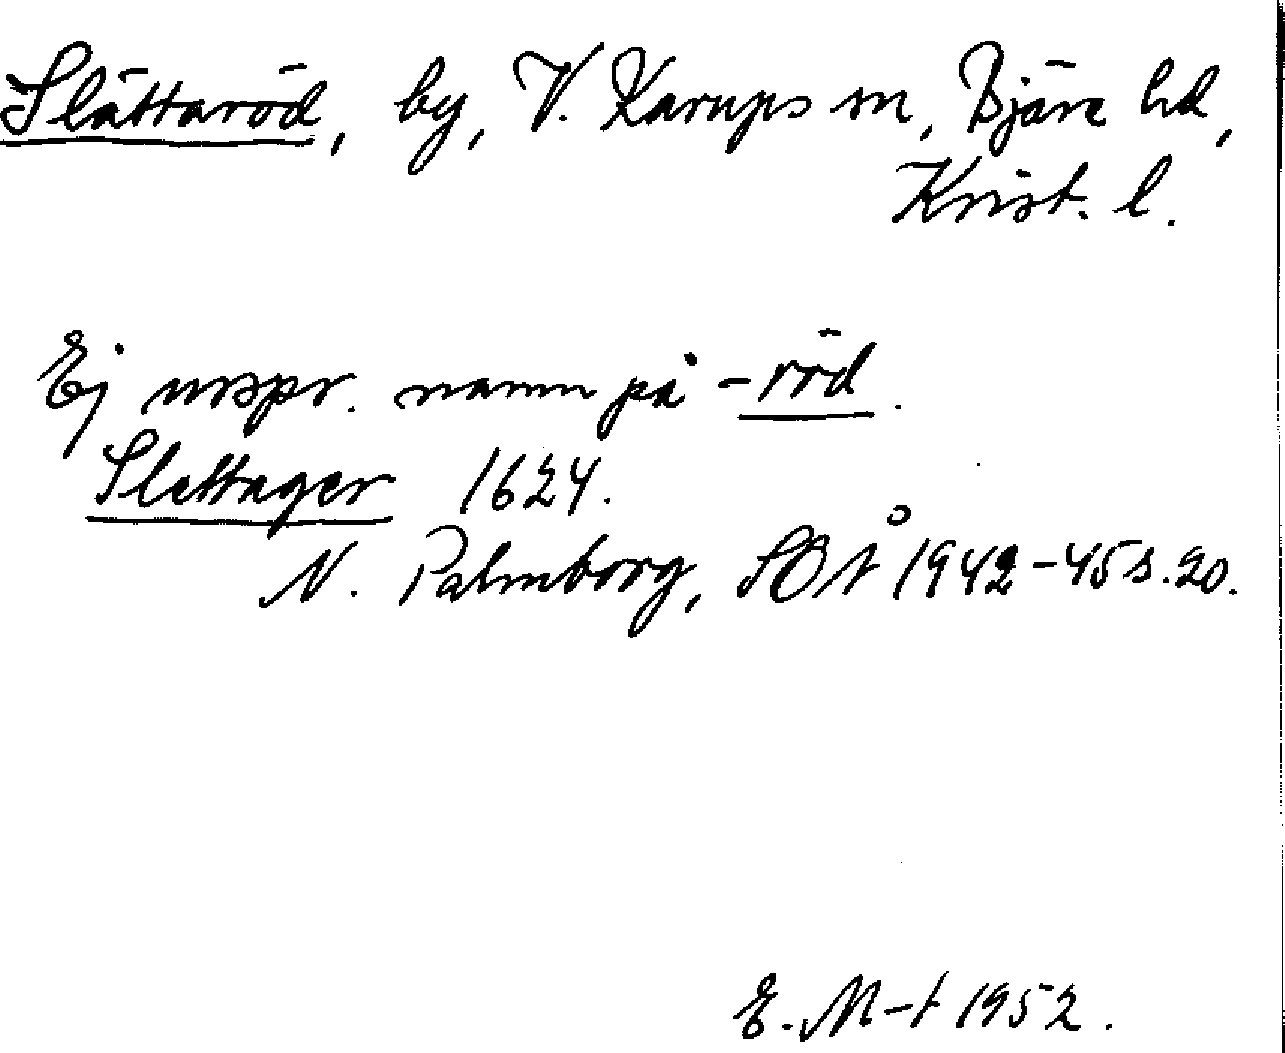 Slättaröd, by, V. Karups sn, Bjäre hd,
Krist. l.
Ej urspr. namn på -röd.
Slettager 1624.
N. Palmborg, SOÅ 1942-45 s. 20.
E. M-t 1952.